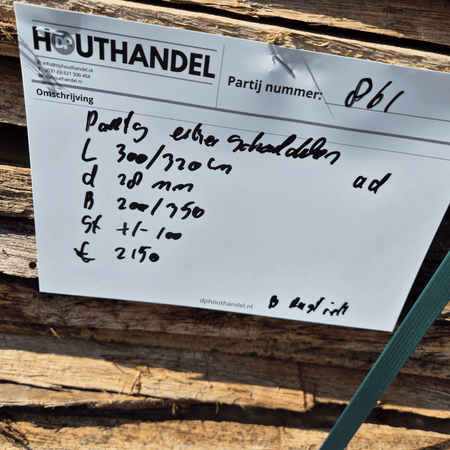 HOUTHANDEL
DP
info@dphouthandel.nl
0031 (0) 621 590 454
dphouthandel.nl
Partij nummer: 861
Omschrijving
Partij eiken schaaldelen
L 300/320 cm ad
d 28 mm
B 200/350
St +/- 100
€ 2150
dphouthandel.nl
B